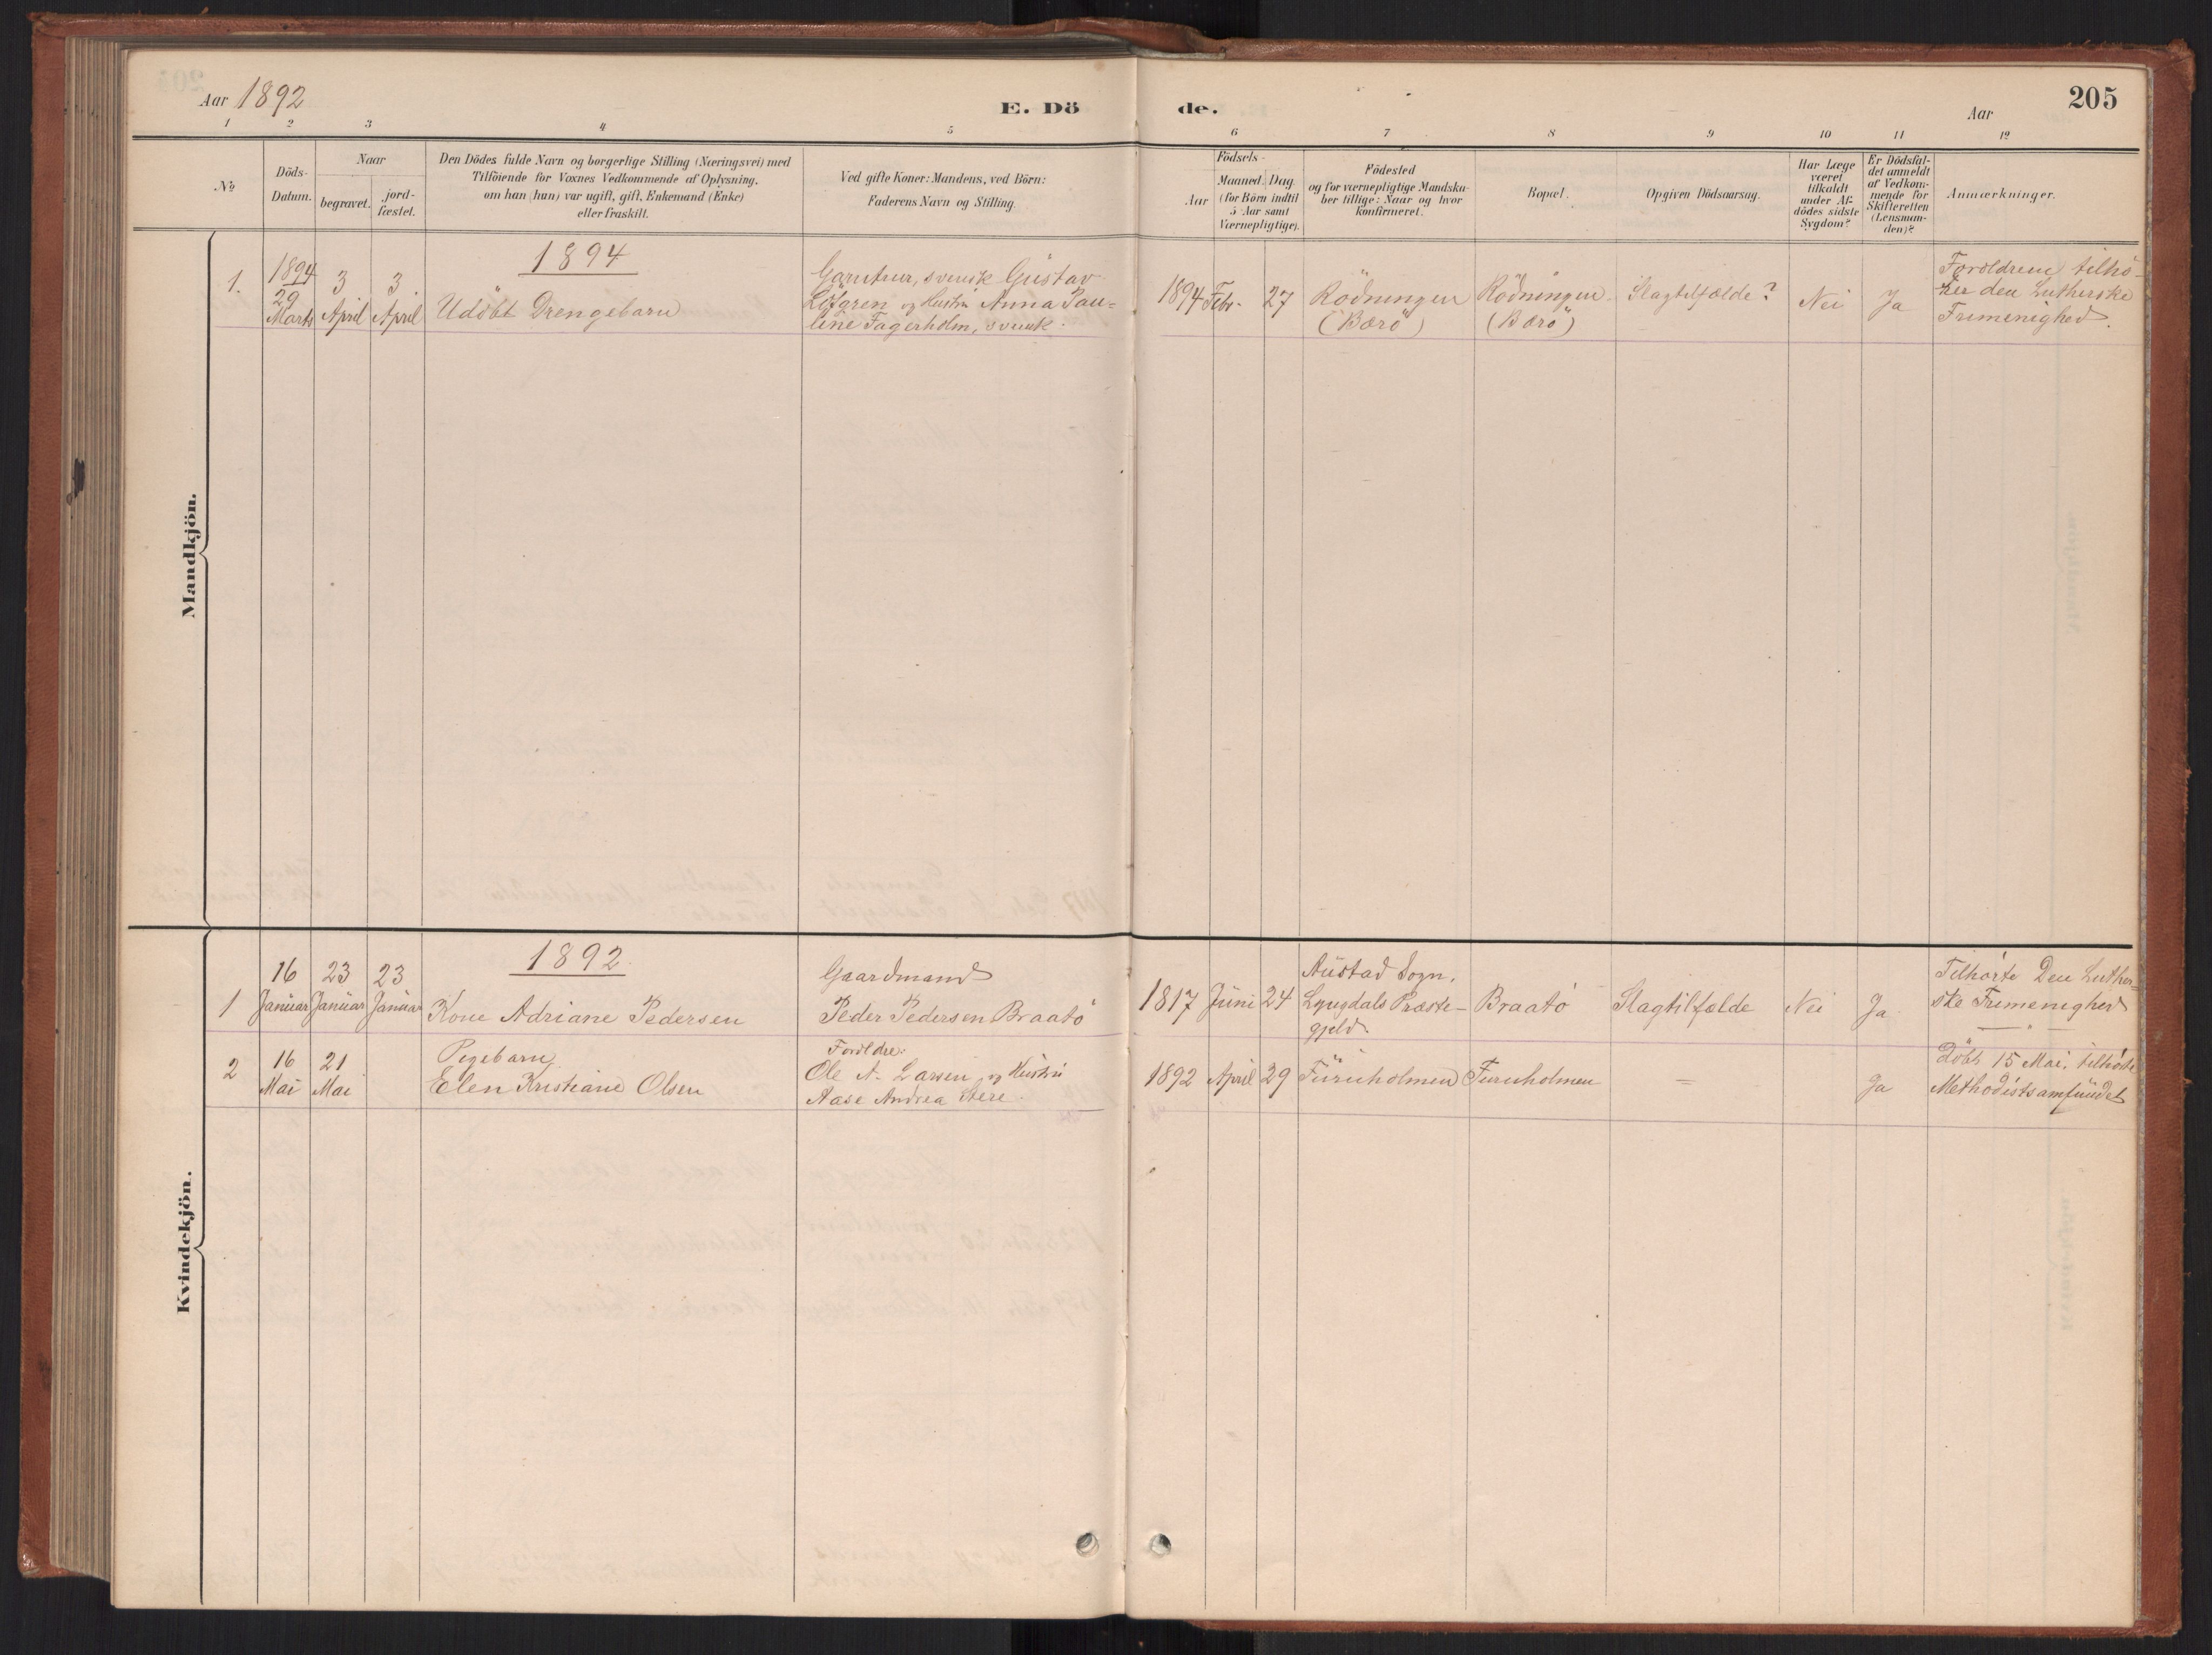 Aar 1892
E. Dö de.
Aar
205
1 2 3 4 5 6 7 8 9 10 11 12
No
Döds-
Datum.
Naar
begravet.
jord-
fæstet.
Den Dödes fulde Navn og borgerlige Stilling (Næringsvei) med
Tilföiende for Voxnes Vedkommende af Oplysning,
om han (hun) var ugift, gift, Enkemand (Enke)
eller fraskilt.
Ved gifte Koner: Mandens, ved Börn:
Faderens Navn og Stilling.
Födsels-
Aar
Maaned. Dag.
(for Börn indtil
5 Aar samt
Værnepligtige).
Födested
og for værnepligtige Mandska-
ber tillige: Naar og hvor
konfirmeret.
Bopæl.
Opgiven Dödsaarsag.
Har Læge
været
tilkaldt
under Af-
dödes sidste
Sygdom?
Er Dödsfal-
det anmeldt
af Vedkom-
mende for
Skifteretten
(Lensman-
den)?
Anmærkninger.
Mandkjön.
1894
1.
1894
29
Marts
3
April
3.
April
Udöbt Drengebarn
svensk Gustav
Löfgren og Hustru Anna Pau-
line Fagerholm, svensk.
1894 Febr. 27
Rödningen
(Barö)
Rödningen.
(Barö)
Slagtilfælde?
Nei
Ja
Forældrene tilhö-
rer den Lutherske
Frimenighed.
Kvindekjön.
1892.
1
16
Januar
23
Januar
23
Januar
Kone Adriane Pedersen
Gaardmand
Peder Pedersen Braatö
1817 Juni 24
Austad Sogn,
Lyngdals Præste-
gjeld.
Braatö
Slagtilfælde
Nei
Ja
Tilhörte Den Luther-
ske Frimenighed
2
16
Mai
21
Mai
Pigebarn
Elen Kristiane Olsen
Forældre:
Ole A. Larsen og Hustru
Aase Andrea
1892 April 29
Furuholmen
Furuholmen
–
Ja
Döbt 15 Mai, tilhörte
Methodistsamfundet